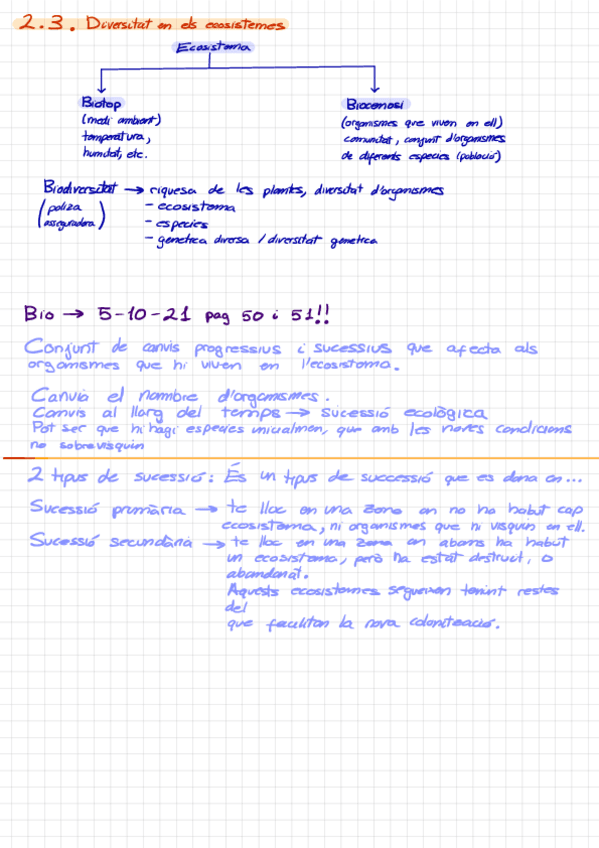 2.3. Diversitat en els ecosistemes
Ecosistema
Biotop
(medi ambient)
temperatura,
humitat, etc.
Biocenosi
(organismes que viuen en ell)
comunitat, conjunt d'organismes
de diferents especies (població)
Biodiversitat → riquesa de les plantes, diversitat d'organismes
(poliza
asseguradora)
- ecosistema
- especies
- genetica diversa / diversitat genetica
Bio → 5-10-21 pag 50 i 51!!
Conjunt de canvis progressius i sucessius que afecta als
organismes que hi viuen en l'ecosistema.
Canvia el nombre d'organismes.
Canvis al llarg del temps → sucessió ecològica
Pot ser que hi hagi especies inicialmen, que amb les noves condicions
no sobrevisquin
2 tipus de sucessió: És un tipus de successió que es dona en...
Sucessió primària → te lloc en una zona on no ha habut cap
ecosistema, ni organismes que hi visquin en ell.
Sucessió secundària → te lloc en una zona on abans ha habut
un ecosistema, però ha estat destruct, o
abandanat.
Aquests ecosistemes segueixen tenint restes
del
que facilitan la nova colonització.